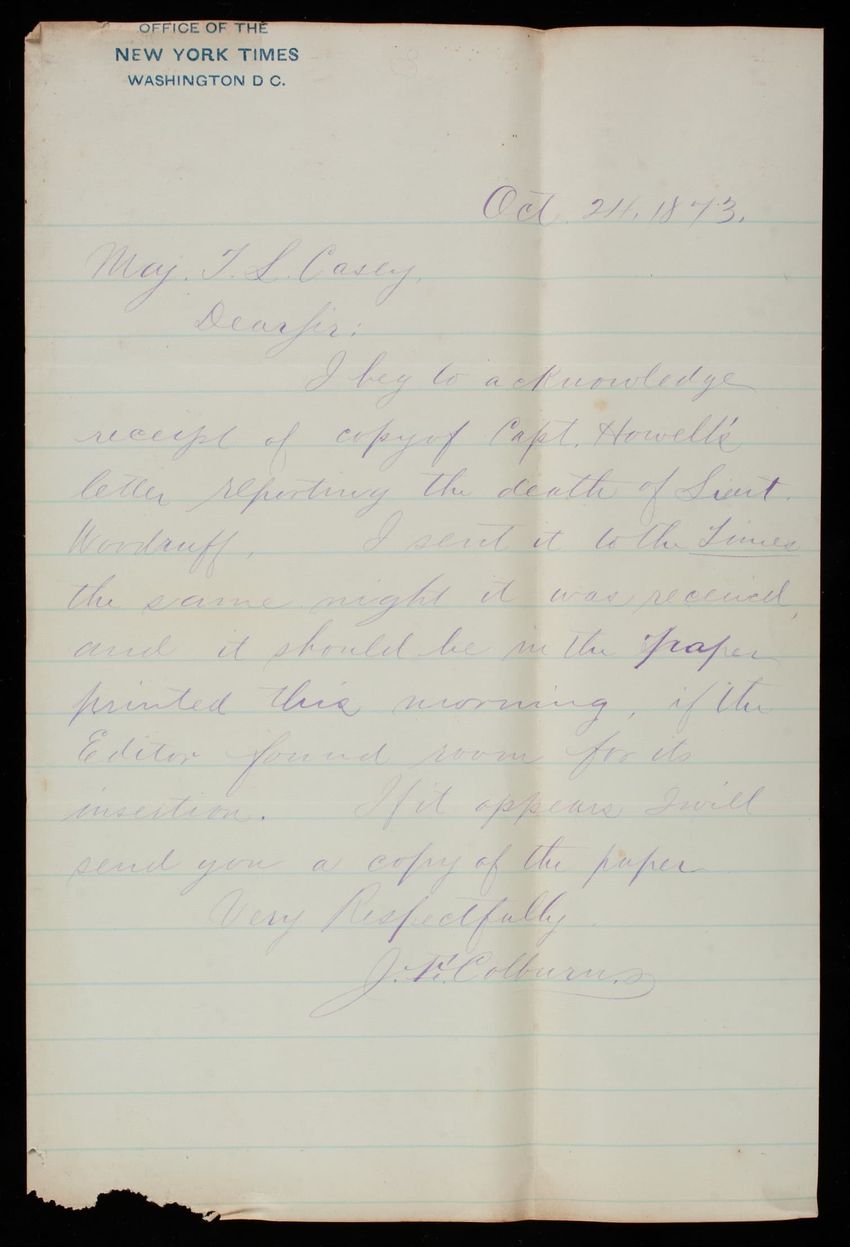 OFFICE OF THE
NEW YORK TIMES
WASHINGTON D C.
Oct. 24, 1873.
Maj. T. L. Casey,
Dear Sir:
I beg to acknowledge
receipt of copy of Capt. Howell's
letter reporting the death of Lieut.
Woodruff. I sent it to the Times
the same night it was received,
and it should be in the paper
printed this morning, if the
Editor found room for its
insertion. If it appears I will
send you a copy of the paper
Very Respectfully
J. F. Colburn